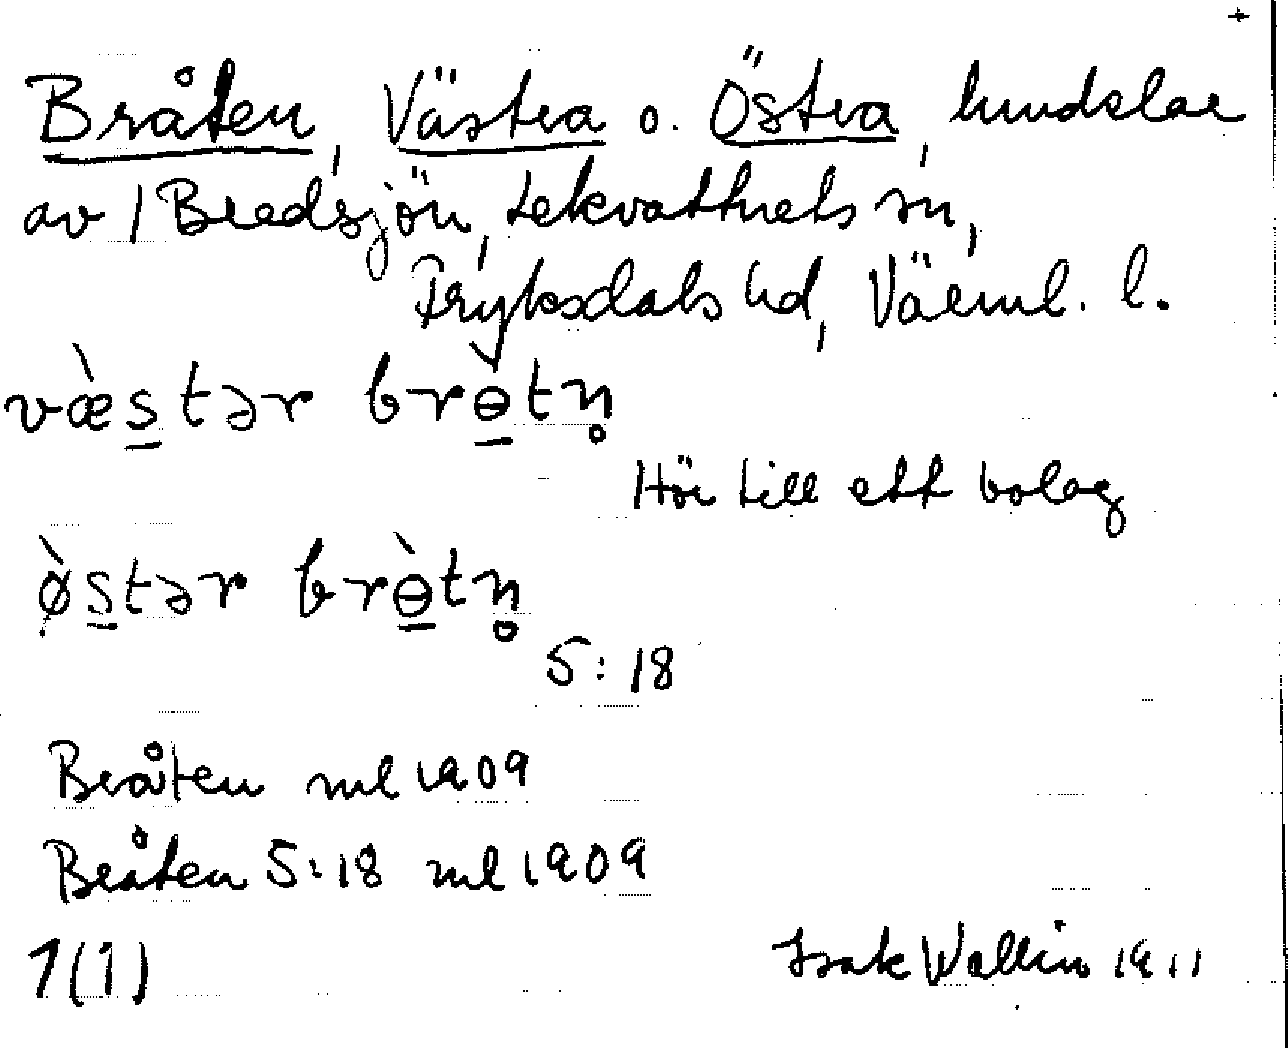 +
Bråten, Västra o. Östra, hmdslar
av 1 Bredsjön, Lekvattnets sn,
Fryksdals hd, Värml. l.
væ̀s̲tər brɵ̲̀tn̥
Hör till ett bolag
ø̀s̲tər brɵ̲̀tn̥
5:18
Bråten ml 1909
Bråten 5:18 ml 1909
1(1)
Isak Wallin 1911